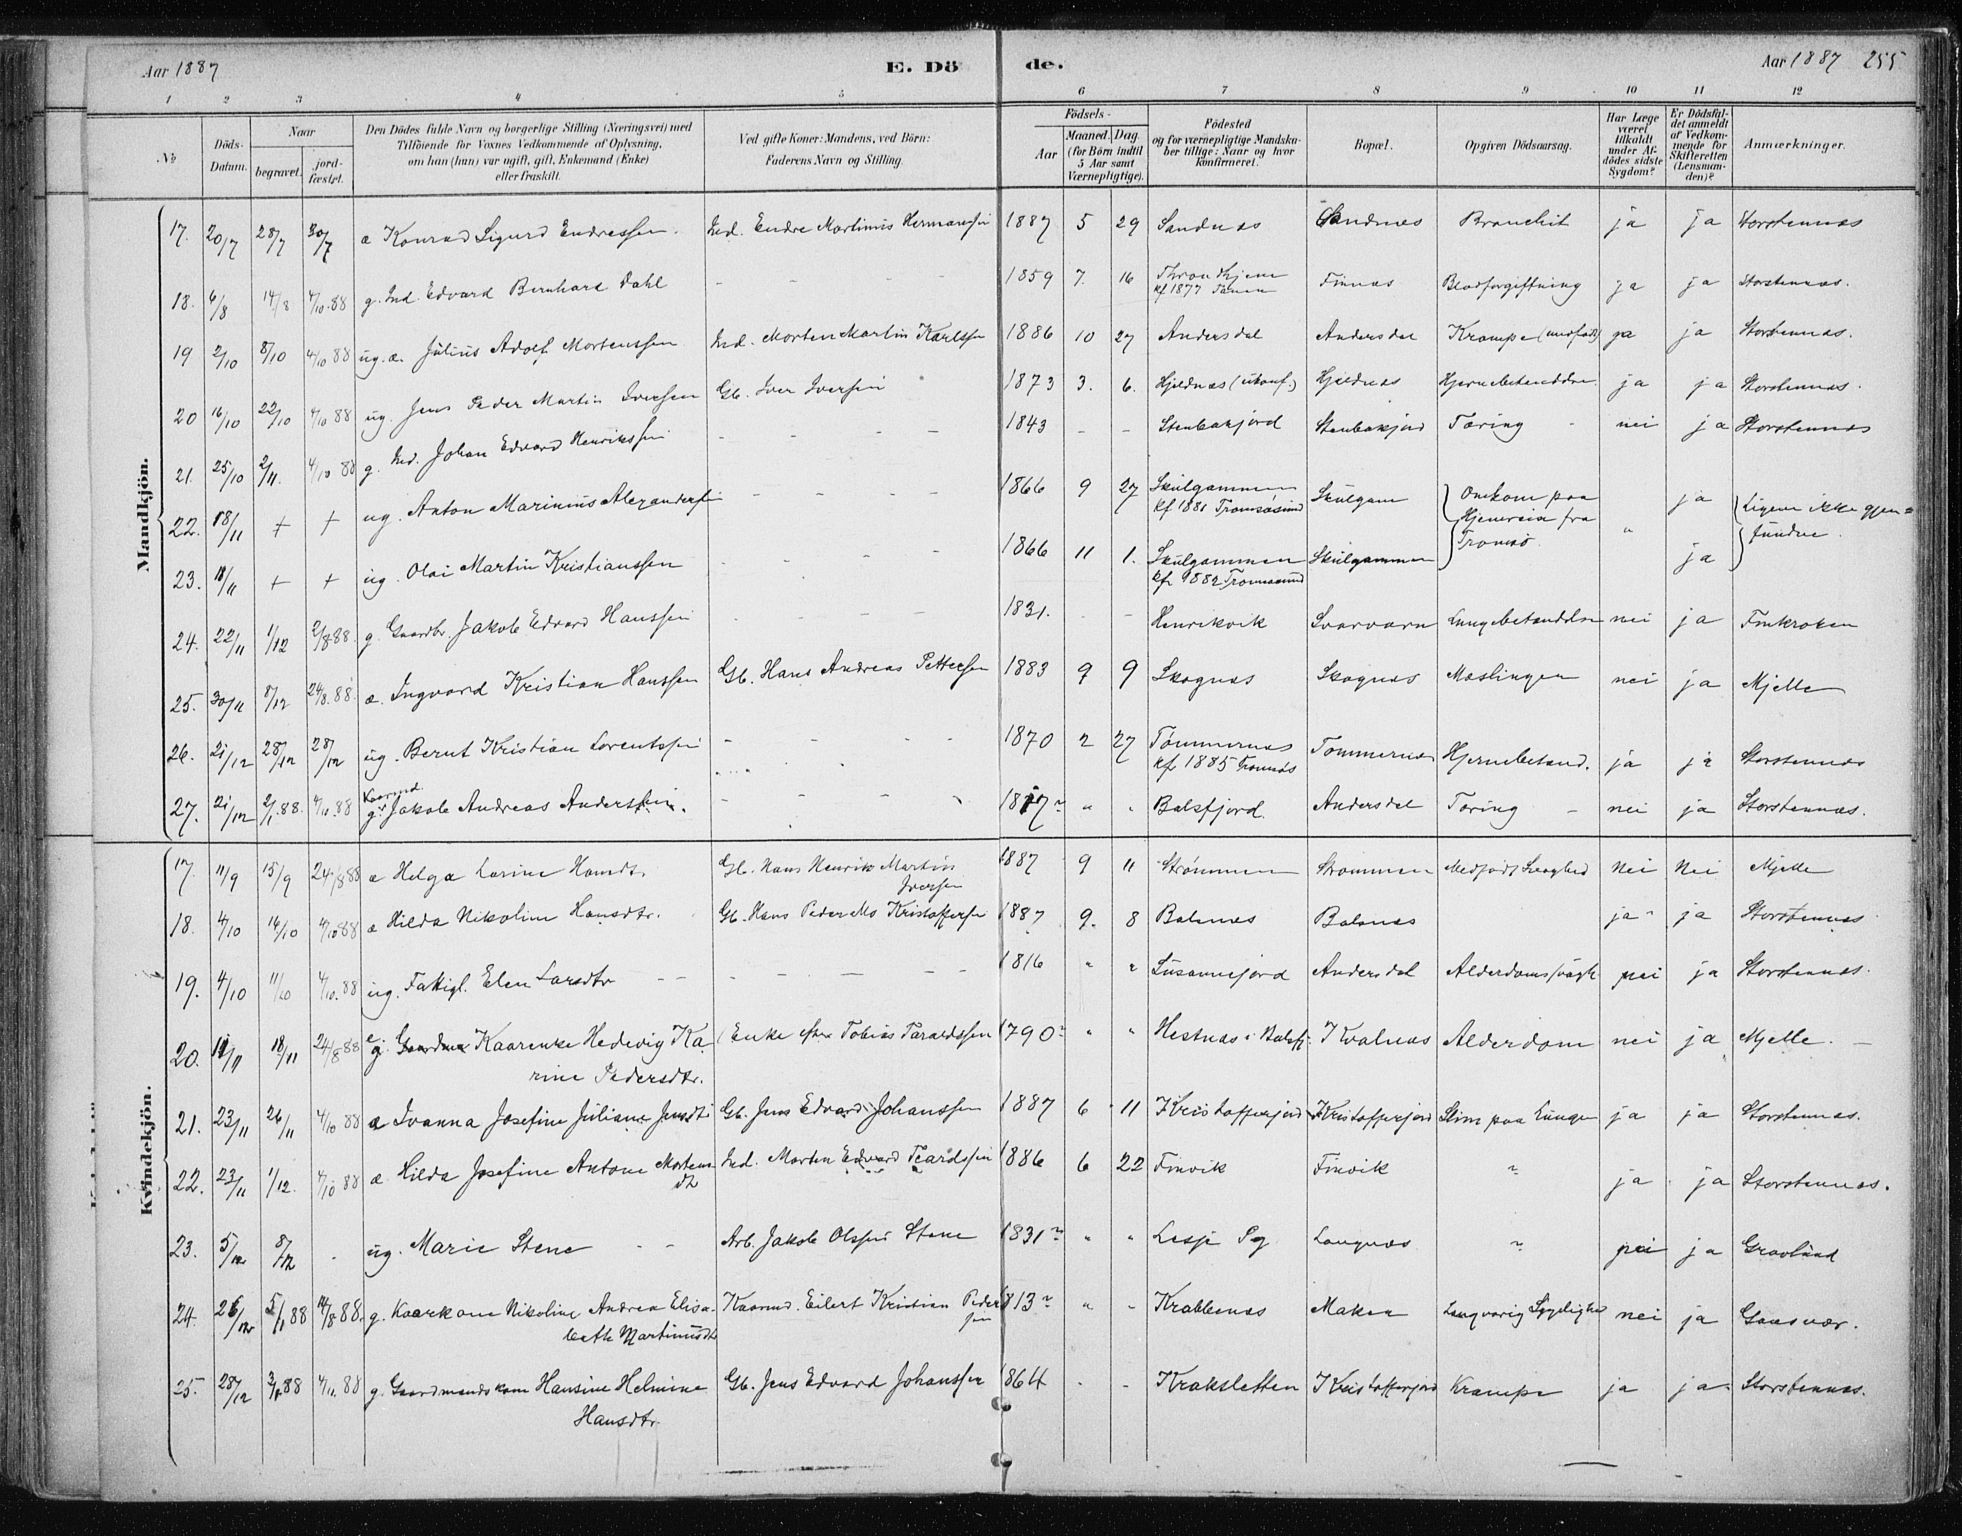 Aar 1887 E. Dö de. Aar 1887 255
1 2 3 4 5 6 7 8 9 10 11 12
№
Döds-Datum.
Naar
begravet.
jord-fæstet.
Den Dödes fulde Navn og borgerlige Stilling (Næringsvei) med
Tilföiende for Voxnes Vedkommende af Oplysning,
om han (hun) var ugift, gift, Enkemand (Enke)
eller fraskilt.
Ved gifte Koner: Mandens, ved Börn:
Faderens Navn og Stilling.
Födsels-
Aar
Maaned. Dag.
(for Börn indtil
5 Aar samt
Værnepligtige).
Födested
og for værnepligtige Mandska-
ber tillige: Naar og hvor
konfirmeret.
Bopæl.
Opgiven Dödsaarsag.
Har Læge
været
tilkaldt
under Af-
dödes sidste
Sygdom?
Er Dödsfal-
det anmeldt
af Vedkom-
mende for
Skifteretten
(Lensman-
den)?
Anmærkninger.
Mandkjön.
17. 20/7 28/7 30/7 æ Konrad Sigurd Endressen. Ind. Endre Martinus Hermansen 1887 5 29 Sandnæs Sandnæs Bronchit ja ja Storstennæs
18. 6/8 14/8 4/10 88 g. Ind. Edvard Bernhard Dahl - - - - 1859 7. 16 Throndhjem
kf 1877 Tanen Finnæs Blodforgiftning ja ja Storstennæs.
19 2/10 8/10 4/10 88 ug. æ. Julius Adolf Mortenssen Ind. Morten Martin Karlssen 1886 10 27 Andersdal Andersdal Krampe (medfødt) ja ja Storstennæs.
20 16/10 22/10 4/10 88 ug. Jens Peder Martin Iversen Gb. Iver Iversen 1873 3. 6. Hjeldnæs (ukonf.) Hjeldnæs Hjernebetænddse ja ja Storstennæs.
21. 25/10 2/11. 4/10 88 g. Ind. Johan Edvard Henrikssen - - - - 1843 - - Stenbakjord Stenbakjord Tæring - nei ja Storstennæs
22. 18/11 + + ug. Anton Marinius Alexandersen - - - - 1866 9 27 Skulgammen
kf 1881 Tromsøsund Skulgam Omkom paa
Hjemreise fra
Tromsø. " ja Ligene ikke gjen=
fundne.
23. 18/11 + + ug. Olai Martin Kristianssen - - - - 1866 11 1. Skulgammen
kf. 1882 Tromsøsund Skulgammen ja
24. 22/11 1/12 2/8 88. g. Gaardbr. Jakob Edvard Hanssen - - - - 1831. - - Henrikvik Svarvarn Lungebetænddse nei ja Finkroken
25. 30/11 8/12 24/8. 88. æ. Ingvard Kristian Hanssen Gb. Hans Andreas Pettersen 1883 9 9 Skognæs Skognæs Mæslinger nei ja Mjelle
26. 21/12 28/12 28/12 ug. Bernt Kristian Lorentssen - - - - 1870 2 27 Tømmernæs
kf. 1885 Tromsøs Tommernæs Hjernebetænd. ja ja Storstennæs
27. 21/12 2/1. 88. 4/10. 88 Kaarmd.
g. Jakob Andreas Anderssen. - - - 1817 " " Balsfjord. Andersdal Tæring - nei ja Storstennæs.
Kvindekjön.
17. 11/9 15/9 24/8 88 æ Helga Larine Hansdtr. Gb. Hans Henrik Martin
Iversen 1887 9 11 Strømmen Strømmen Medfødt Svaghed Nei Nei Mjelle
18. 4/10 16/10 4/10 88 æ Hilda Nikoline Hansdtr. Gb. Hans Peder Ms Kristoffersen 1887 9. 8 Balsnæs Balsnæs ja ja Storstennæs
19. 4/10 11/10 4/10. 88 ug. Fattigl. Elen Larsdtr - - - - - - 1816 " " Lusannejord Andersdal Alderdomssvagh nei ja Storstennæs.
20. 11/11 18/11 24/8 88 e Kaarenke Hedevig Ka-
rine Pedersdtr. (Enke efter Tobias Taraldssen 1790 " " Hestnæs i Balsfj. Kvalnæs Alderdom nei ja Mjelle.
21. 23/11 26/11 4/10 88 æ Ivanna Josefine Juliane Jensdtr Gb. Jens Edvard Johanssen 1887 6 11 Kristofferjord Kristofferjord Slim paa Lunger ja ja Storstennæs.
22. 23/11 1/12. 4/10 88 æ. Hilda Josefine Antone Mortens
dtr Ind. Morten Edvard Teardssen 1886 6 22 Finvik Finvik " ja ja Storstennæs.
23. 5/12 8/12 - ug. Marie Stene - - Arb. Jakob Olssen Stene 1831 " " Lesje Pg Langnæs " nei ja Gravlund
24. 26/12 5/1 88 14/8 88. g. Kaarkone Nikoline Andrea Elisa-
beth Martinusdtr Kaarmd. Eilert Kristian Peder
sen 1813 " " Krabbenæs Maken Langvarig Sygelighed nei ja Gaasvær.
25. 28/12 88 4/10. 88 g. Gaardmandskone Hansine Helmine
Hansdtr. Gb. Jens Edvard Johanssen 1864 - - Kraksletten Kristofferjord Krampe ja ja Storstennæs.